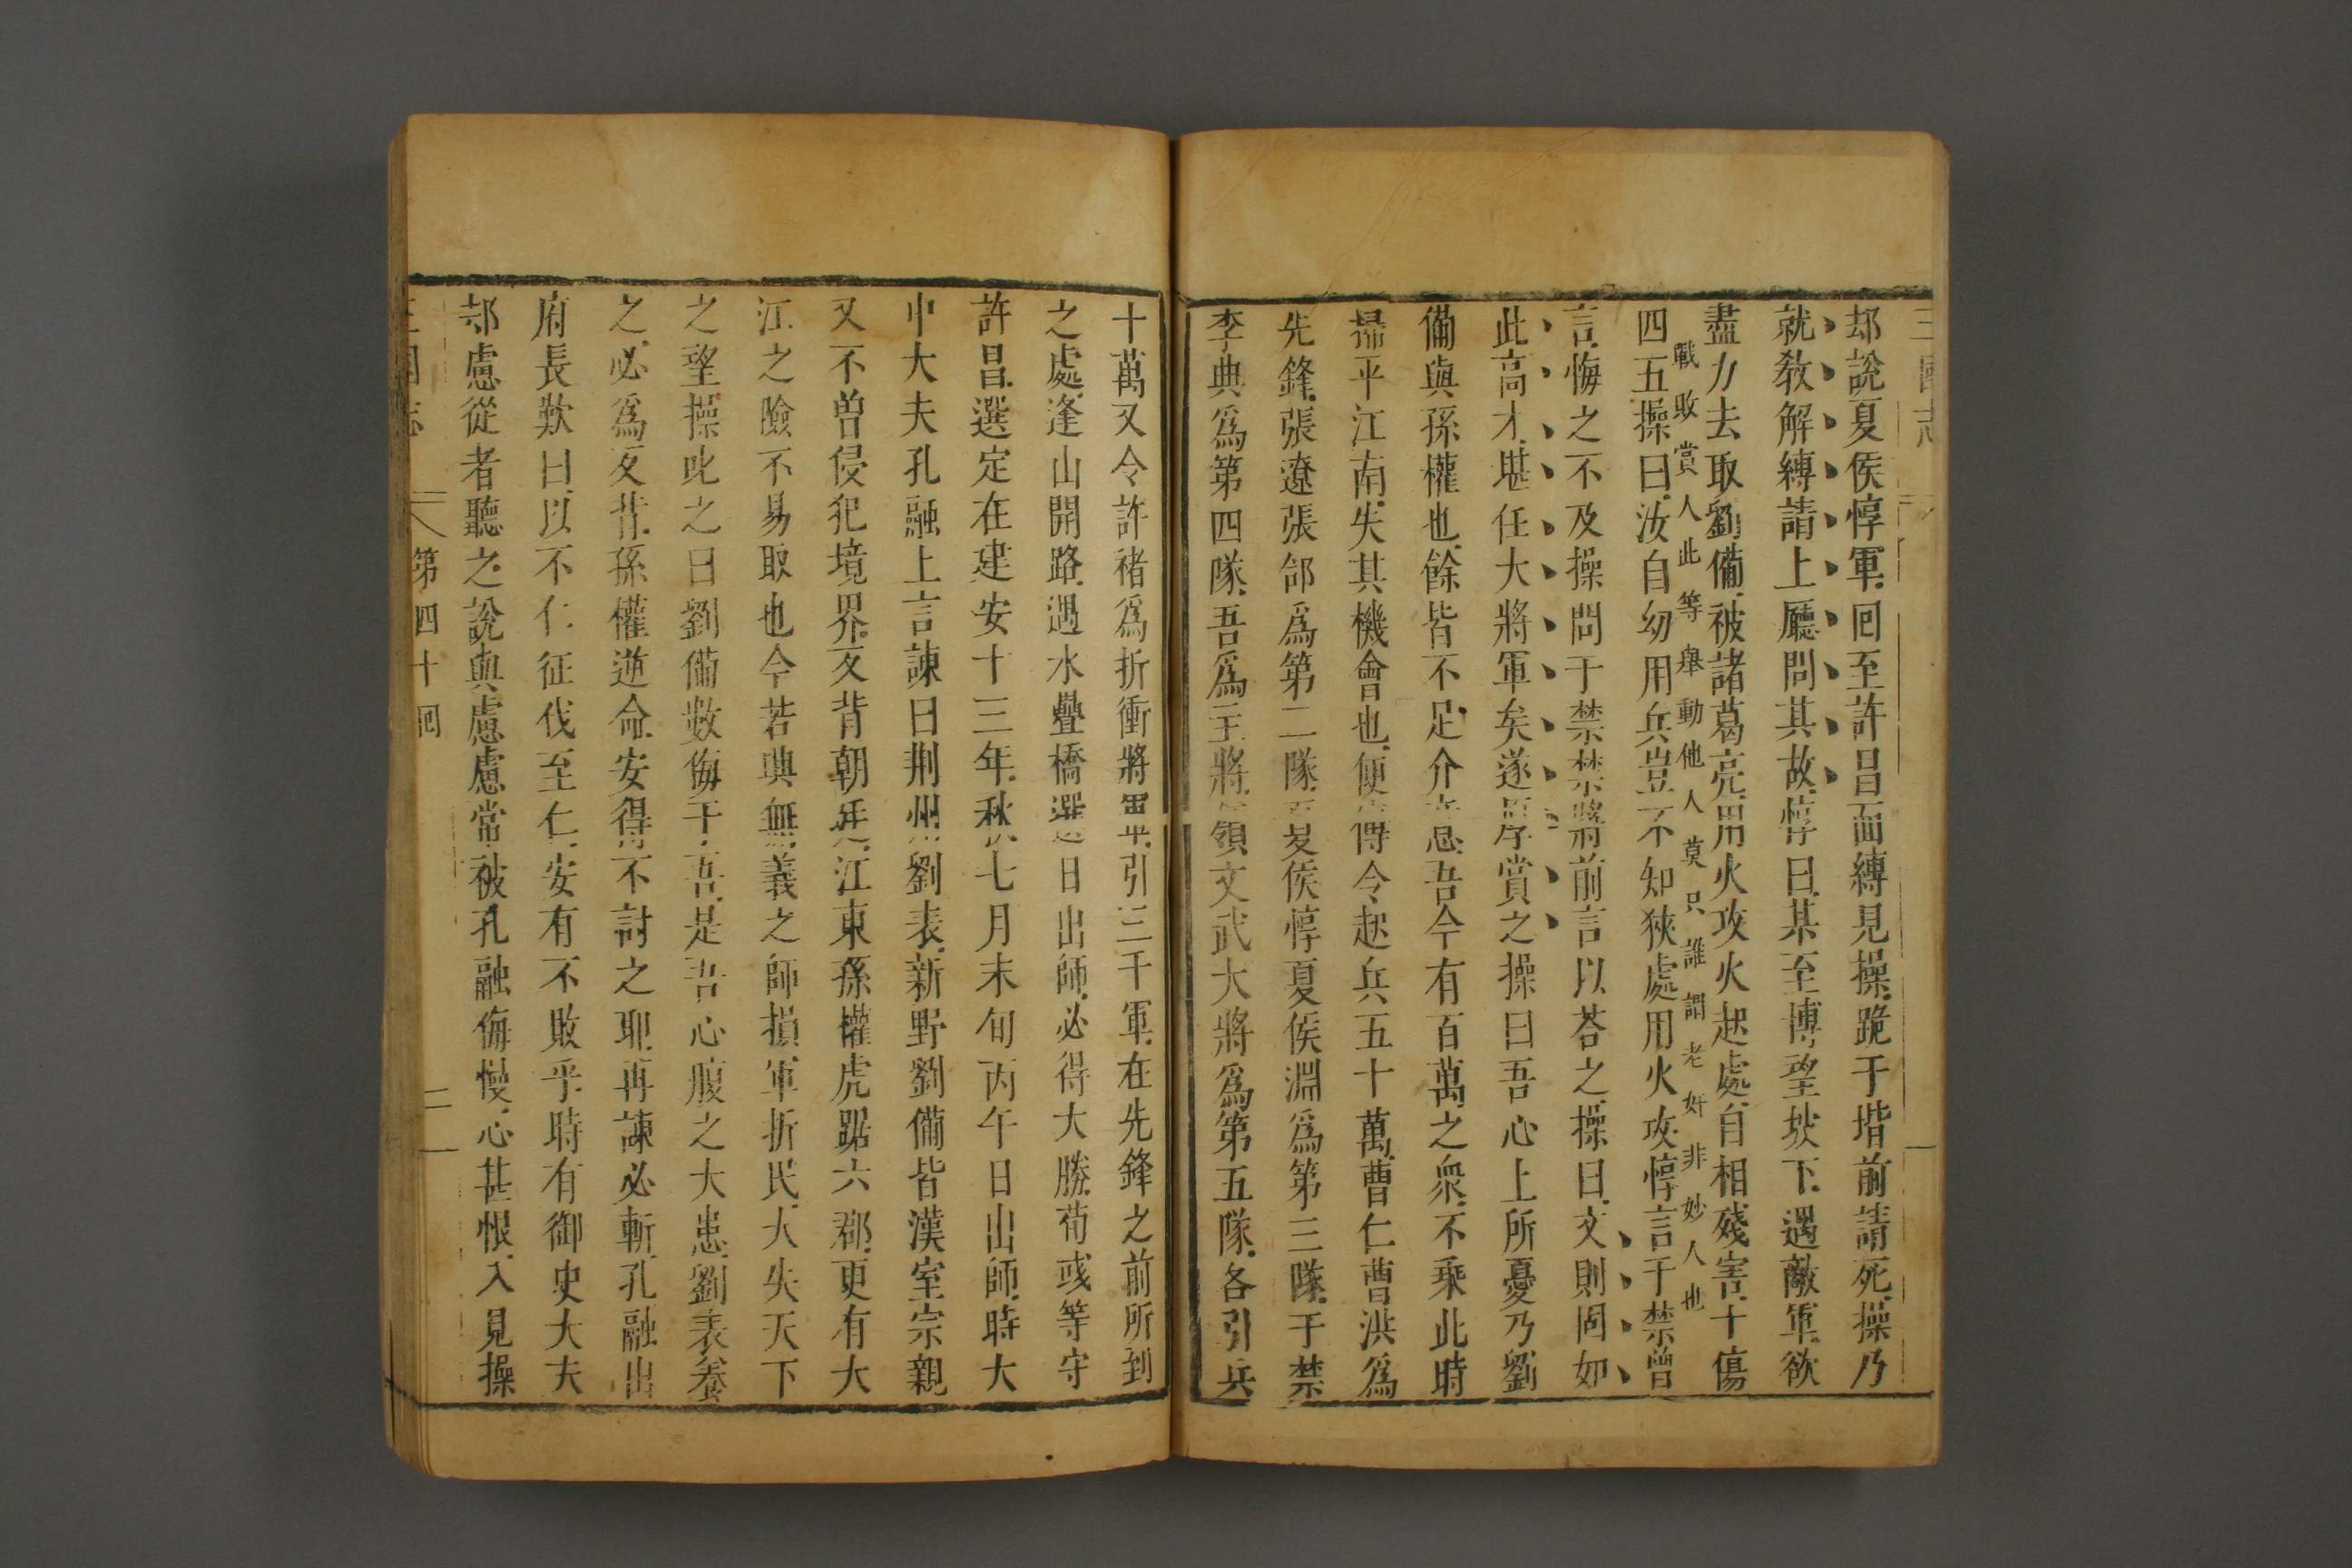 三國志
却說夏侯惇軍回至許昌面縛見操跪于堦前請死操乃
就教解縛請上廳問其故惇曰某至博望坡下遇敵軍欲
盡力去取劉備被諸葛亮用火攻火起處自相殘害十傷
戰敗賞人此等舉動他人莫只誰謂老奸非妙人也
四五操曰汝自幼用兵豈不知狹處用火攻惇言于禁曾
言悔之不及操問于禁禁將前言以荅之操曰文則固如
此高才堪任大將軍矣遂厚賞之操曰吾心上所憂乃劉
備與孫權也餘皆不足介意吾今有百萬之衆不乘此時
掃平江南失其機會也便傳令起兵五十萬曹仁曹洪爲
先鋒張遼張郃爲第二隊夏侯惇夏侯淵爲第三隊于禁
李典爲第四隊吾爲主將領文武大將爲第五隊各引兵
十萬又令許褚爲折衝將軍引三千軍在先鋒之前所到
之處逢山開路遇水疊橋選日出師必得大勝荀彧等守
許昌選定在建安十三年秋七月末旬丙午日出師時大
中大夫孔融上言諫曰荆州劉表新野劉備皆漢室宗親
又不曾侵犯境界反背朝廷江東孫權虎踞六郡更有大
江之險不易取也今若興無義之師損軍折民大失天下
之望操叱之曰劉備數侮于吾是吾心腹之大患劉表養
之必爲反背孫權逆命安得不討之耶再諫必斬孔融出
府長歎曰以不仁征伐至仁安有不敗乎時有御史大夫
郄慮從者聽之說與慮慮常被孔融侮慢心甚恨入見操
三國志 第四十囘 二